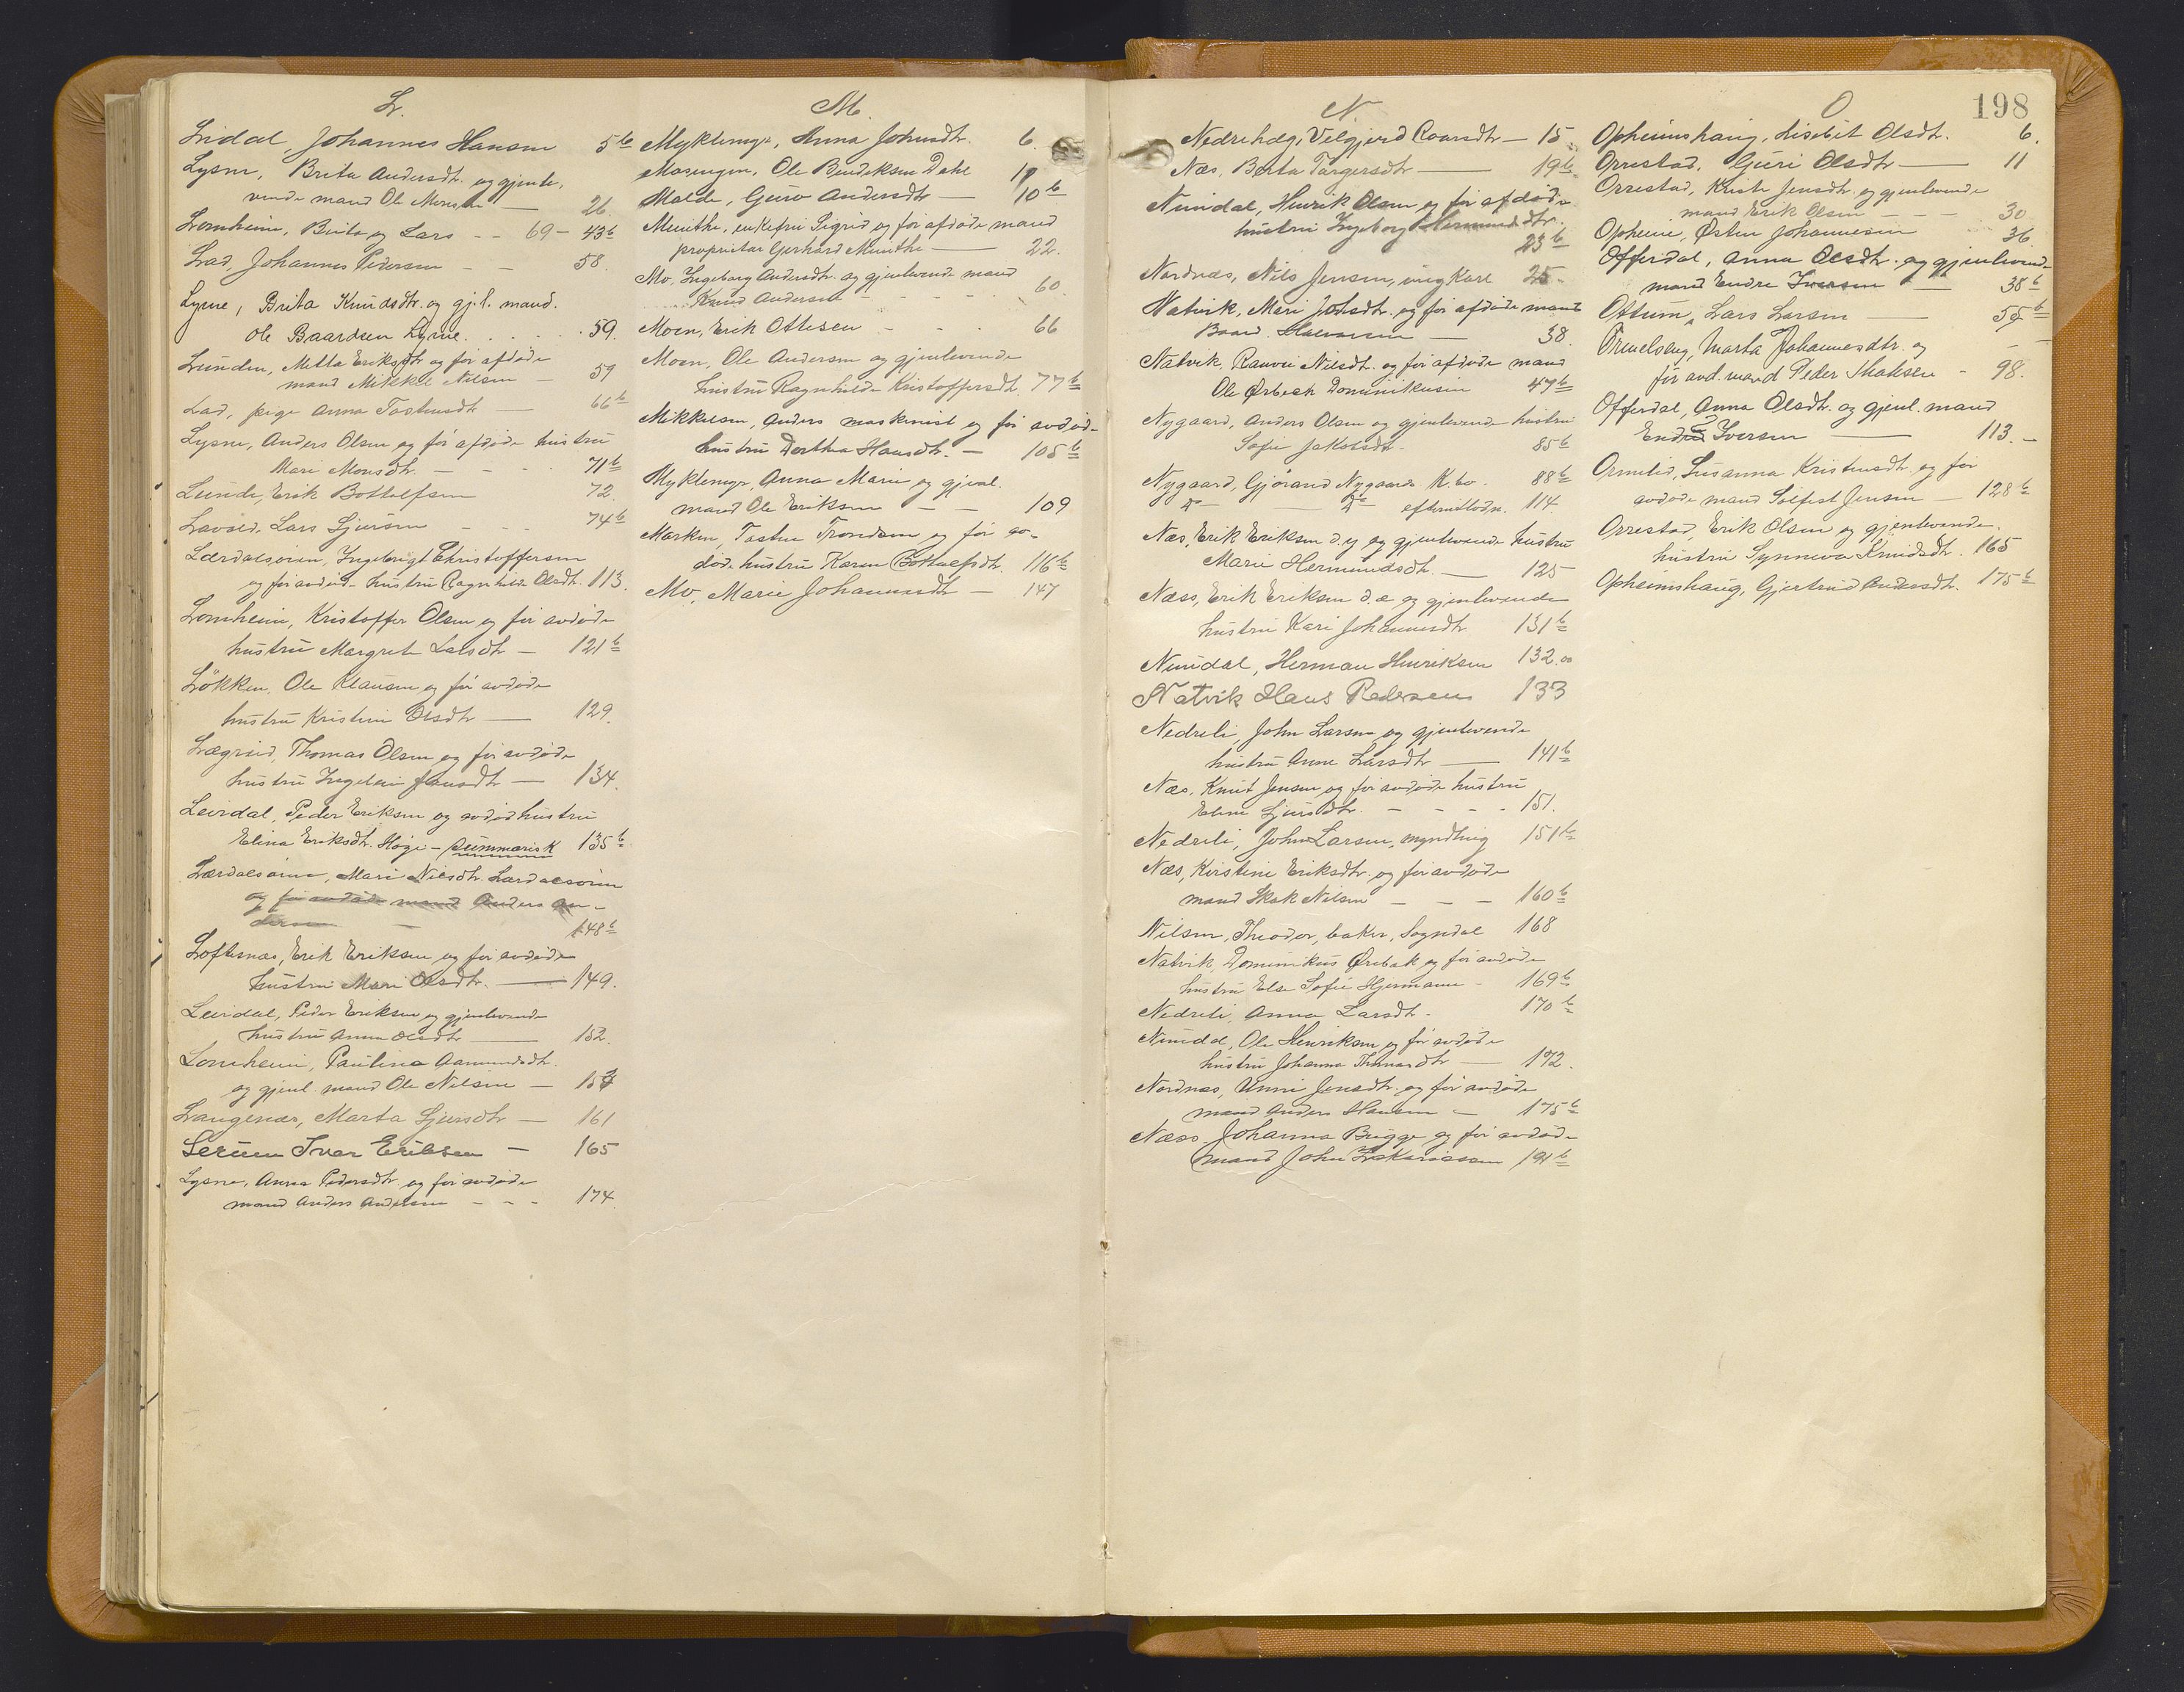 L.
Lidal, Johannes Hansen 5b
Lysne, Brita Andersdtr. og gjenle-
vende mand Ole Monsen — 26.
Lomheim, Brita og Lars -- 69 - 43b
Lad, Johannes Pedersen - - 58.
Lysne, Brita Knudsdtr. og gj.l. mand.
Ole Baardsen Lysne. . . . 59.
Lunden, Metta Eriksdtr og for afdøde
mand Mikkel Nilsen — 59
Lad, pige Anna Tostensdtr — 66b
Lysne, Anders Olsen og for afdøde hustru
Mari Monsdtr. — - - 71b
Lunde, Erik Bottolfsen 72.
Lavold, Lars Sjursen - - - 74b
Lærdalsøren, Ingebrigt Christoffersen
og for avdøde hustru Ragnhilda Olsdtr. 113.
Lomheim, Kristoffer Olsen og for avdøde
hustru Margrete Larsdtr — 121b
Løkken, Ole Klausen og for avdøde
hustru Kristine Olsdtr — 129.
Lægreid, Thomas Olsen og for avdøde
hustru Ingeleiv Jonsdtr — 134.
Leirdal, Peder Eriksen og avdød hustru
Elina Eriksdtr. Høgi - summarisk 135b
Lærdalsøren, Mari Nilsdtr. Lærdalsøren
og for avdøde mand Anders An-
dersen — 148b
Loftesnæs, Erik Eriksen og for avdøde
hustru Mari Olsdtr. — 149.
Leirdal, Peder Eriksen og gjenlevende
hustru Anna Olsdtr — 152.
Lomheim, Paulina Aamundsdtr.
og gjenl. mand Ole Nilsen —
Laugenæs, Marta Sjursdtr — 161
Lerum Ivar Eriksen — 165
Lysne, Anna Pedersdtr. og for avdøde
mand Anders Andersen - - - 174.
M.
Myklemyr, Anna Johnsdtr. 6.
Ole Bendiksen Dahl
Molde, Guro Andersdtr — 10b
Munthe, enkefru Sigrid og for afdøde mand
proprietær Gerhard Munthe — 22.
Mo, Ingeborg Andersdtr. og gjenlevende mand
Knud Andersen - - - - 60.
Moen, Erik Ottesen - - - 66
Moen, Ole Andersen og gjenlevende
hustru Ragnhilda Kristoffersdtr. 77b
Mikkelsen, Anders maskinist og for avdøde
hustru Dorthea Hansdtr. — 105b
Myklemyr, Anna Marie og gjenl.
mand Ole Eriksen — — 109
Marken, Tosten Trondsen og for av-
døde hustru Karen Bottolfsdtr. 116b
Mo, Marie Johannesdtr — 147
N.
Nedrehæg, Vilgjerd Roarsdtr — 15.
Næs, Berta Torgersdtr — 19b
Nundal, Henrik Olsen og for afdøde
hustru Ingeborg Hermundsdtr. 23b
Nordnæs, Nils Jensen, ungkarl 25.
Natvik, Mari Johsdtr. og for afdøde mand
Baard Halvorsen — 38.
Natvik, Ranvei Nilsdtr. og for afdøde mand
Ole Ørbech Dominikusen 47b
Nygaard, Anders Olsen og gjenlevende hustru
Sofie Jakobsdtr. 85b
Nygaard, Gjørand Nygaards K.bo. 88b
Do — Do efterutlodn. 114.
Næs, Erik Eriksen d.y og gjenlevende hustru
Marie Hermundsdtr. — 125
Næss, Erik Eriksen d.æ og gjenlevende
hustru Kari Johannesdtr 131b
Nundal, Herman Henriksen 132.
Natvik Hans Pedersen 133
Nedreli, John Larsen og gjenlevende
hustru Anne Larsdtr — 141b
Næs, Knut Jensen og for avdøde hustru
Eline Sjursdtr. - - - - 151.
Nedreli, John Larsen, myndling 151b
Næs, Kirstine Eriksdtr. og for avdøde
mand Skak Nilsen — — — 160b
Nilsen, Theodor, baker, Sogndal 168
Natvik, Dominikus Ørebek og for avdøde
hustru Else Sofie Hjermann - 169b
Nedreli, Anna Larsdtr. 170b
Nundal, Ole Henriksen og for avdøde
hustru Johanna Thomasdtr — 172.
Nordnæs, Unni Jensdtr. og for avdøde
mand Anders Hansen — 175b
Næss, Johanna Brügge og for avdøde
mand John Zakariassen 191b
O
198
Opheimshaug, Lisebet Olsdtr. 6.
Orrestad, Guri Olsdtr — 11
Orrestad, Kristi Jensdtr. og gjenlevende
mand Erik Olsen — - - 30
Opheim, Østen Johannesen 36.
Offerdal, Anna Olsdtr. og gjenlevende
mand Endre Iversen — 38b
Ottum, Lars Larsen — 55b
Ormelseng, Marta Johannesdtr. og
for avd. mand Peder Thaksen - 98.
Offerdal, Anna Olsdtr. og gjenl. mand
Endre Iversen — 113. —
Ormelid, Susanna Kristensdtr. og for
avdøde mand Solfest Jensen — 128b
Orrestad, Erik Olsen og gjenlevende
hustru Synneva Knudsdtr. 165
Opheimshaug, Gjertrud Andersdtr. 175b